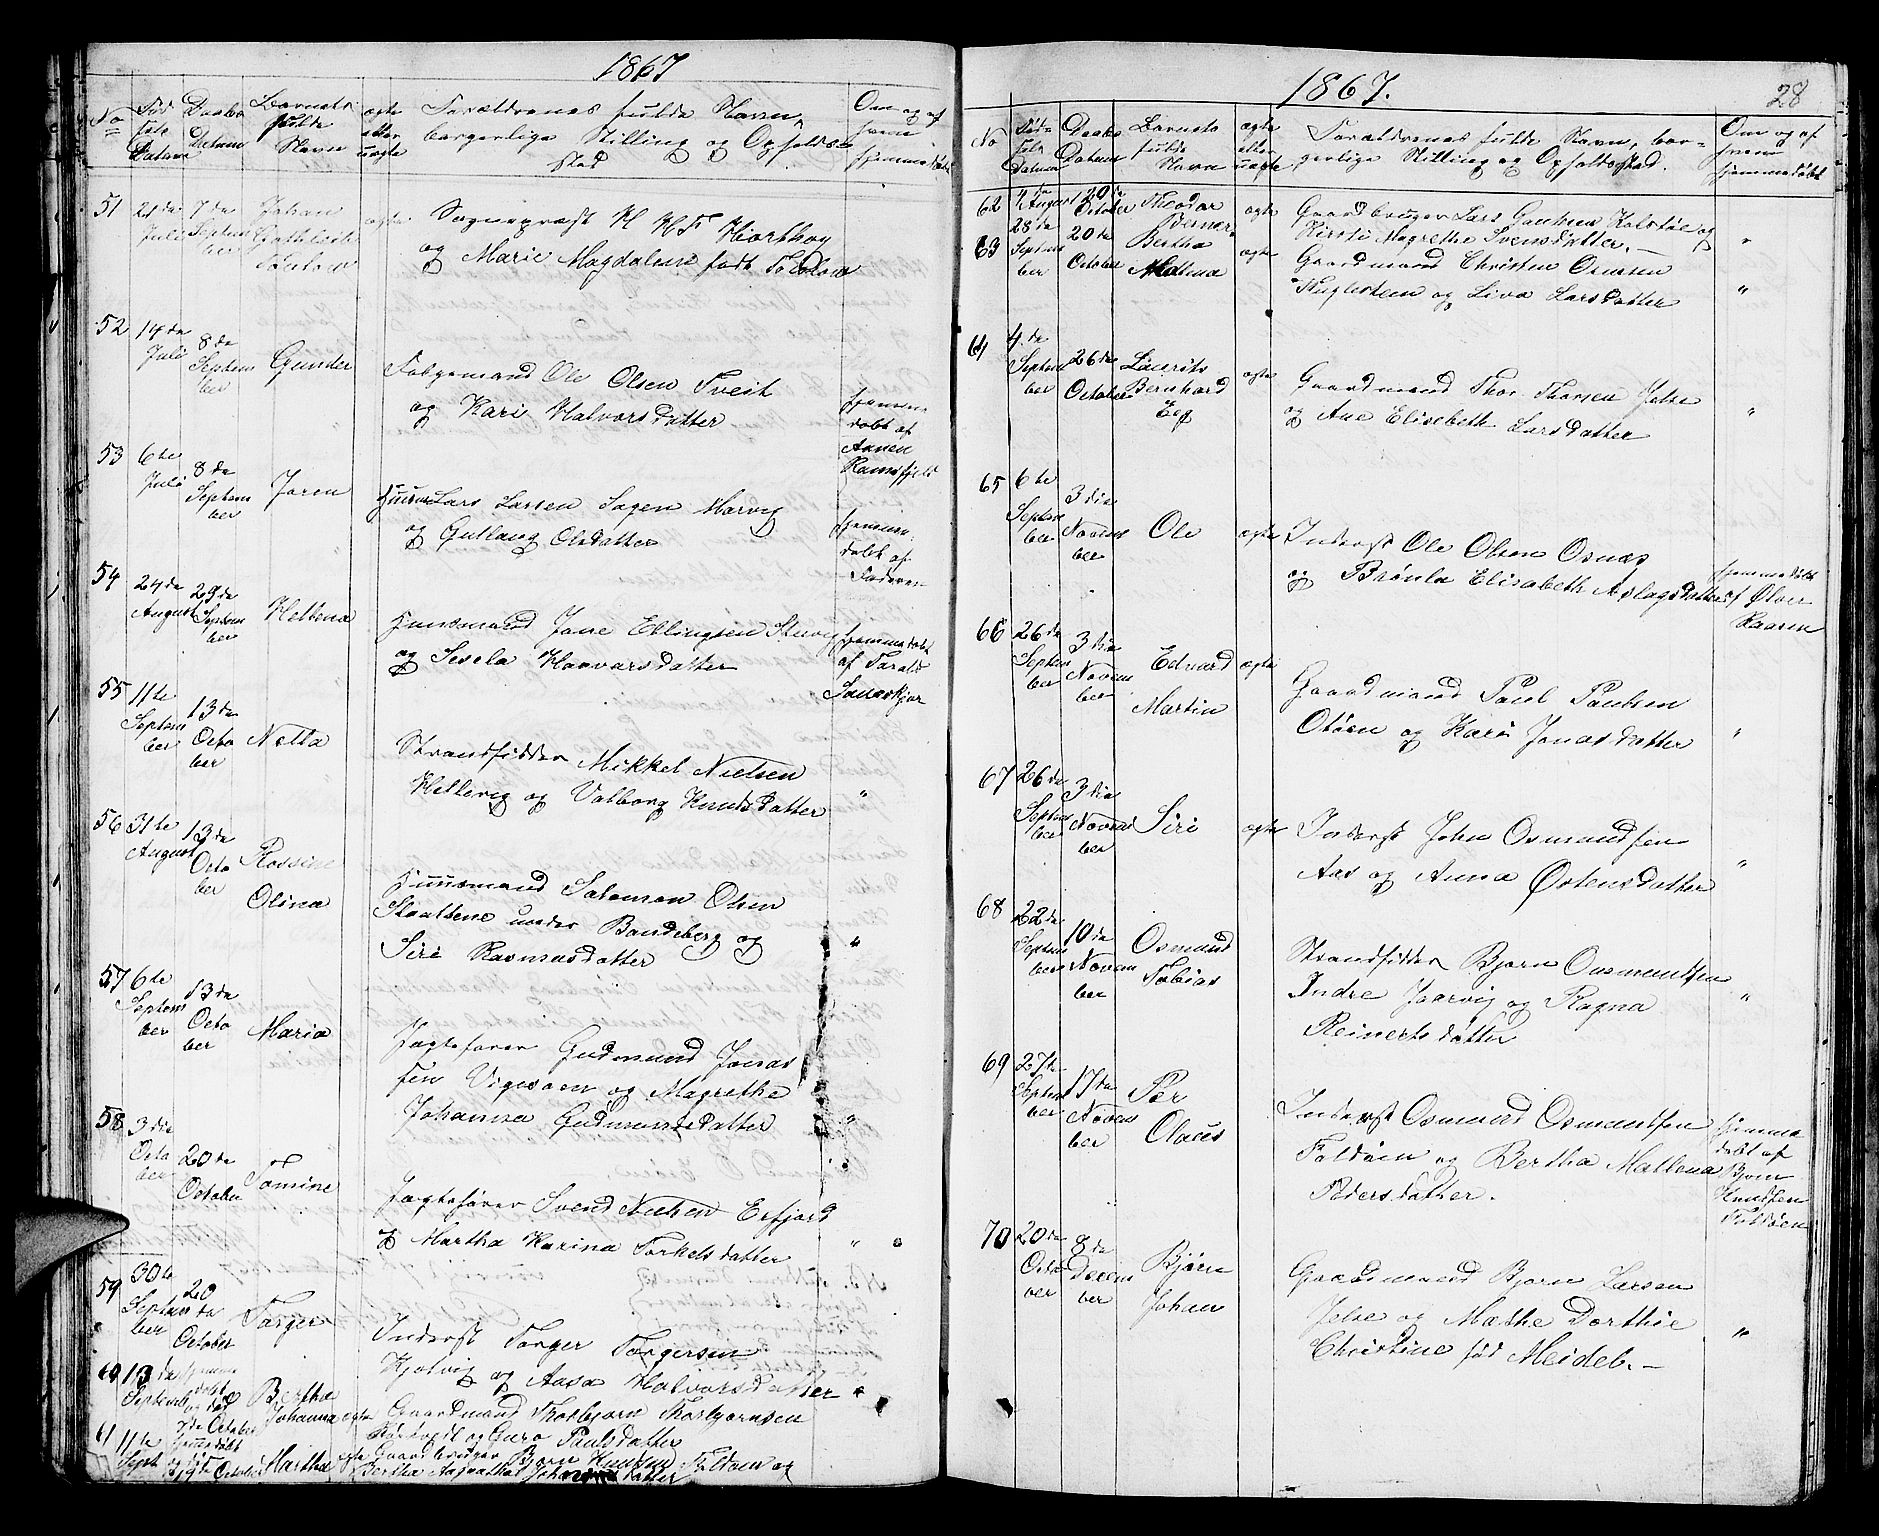 1867
No
Fød
sels
Datum
Daabs
Datum
Barnets
fulde
Navn
ægte
eller
uægte
Forældrenes fulde Navn,
borgerlige Stilling og Opholds-
sted
Om og af
hvem
hjemmedøbt
51
21de
Juli
7de
Septem
ber
Johan
ægte
Sognepræst H H F Hiorthøy
og Marie Magdalene født
52
14de
Juli
8de
Septem
ber
Gunder
Ole Olsen Tveit
og Kari Halvorsdatter
hjemme
døbt af
53
6te
Juli
8de
Septem
ber
Joren
Lars Larsen Sagen Marvig
og Gutlaug Olsdatter
hjemme
døbt af
Faderen
54
24de
August
29de
Septem
ber
Hellena
Huusmand Jone Ellingsen
og Sesela Haavarsdatter
hjemmedøbt
af Tarald
55
11te
Septem
ber
13de
Octo
ber
Netta
Strandsidder Mikkel Nielsen
Hellevig og Valborg Knudsdatter
"
56
31te
August
13de
Octo
ber
Rossine
Olina
Huusmand Salomon Olsen
under Bandeberg og
Siri Rasmusdatter
"
57
6te
Septem
ber
13de
Octo
ber
Maria
Jagtefører Gudmund Jonas
sen og Magrethe
Johanna Gudmundsdatter
"
58
3die
Octo
ber
20de
October
Tomine
Jagtefører Svend Nielsen Erfjord
og Martha Karina Torkelsdatter
"
59
30te
Septem
ber
20
de
October
Torger
Inderst Torger Torgersen
Kjolvig og Aasa Halvorsdatter
60
13de
Septemb
hjemme
døbt
7de October
Bertha
Johanna
ægte
Gaardmand Thorbjørn Thorbjørnsen
og Guro Paulsdatter
61
11te
Sept
October
Martha
ægte
Gaardbruger Bjørn Knudsen Foldøen og
Bertha
1867.
28
No
Føds
sels
Datum
Daabs
Datum
Barnets
fulde
Navn
ægte
eller
uægte
Forældrenes fulde Navn, bor-
gerlige Stilling og Opholdssted.
Om og af
hvem
hjemmedøbt
62
August
20de
October
Theodor
ægte
Gaardbruger Lars Kolstøe og
Kirsti Magrethe Svensdatter.
"
63
28de
Septem
ber
20de
October
Bertha
Mallena
ægte
Gaardmand Christen
og Liva Larsdatter
"
64
4de
Septem
ber
26de
October
Laurits
Bernhard
ægte
Gaardmand Thor Thorsen Jelse
og Ane Elisebeth Larsdatter
"
65
6te
Septem
ber
3die
Novem
ber
Ole
ægte
Inderst Ole Olsen Osnæs
og Brønla Elisabeth Aslagsdatter
hjemmedøbt
66
26de
Septem
ber
3die
Novem
ber
Edvard
Martin
ægte
Gaardmand Paul Paulsen
Otøen og Kari Jonasdatter
"
67
26de
Septem
ber
3die
Novem
ber
Siri
ægte
Inderst John Osmundsen
Aas og Anna Østensdatter
"
68
22de
Septem
ber
10de
Novem
ber
Osmund
Tobias
Strandsidder Bjørn Osmundsen
Indre Jaarvig og Ragna
Reinertsdatter
"
69
27de
Septem
ber
17de
Novem
ber
Per
Olaus
Inderst Osmund Osmundsen
Foldøen og Bertha Mallena
Pedersdatter.
hjemme
døbt af
Bjørn
Knudsen
Foldøen
70
20de
Octo
ber
8de
Decem
ber
Bjørn
Johan
Gaardmand Bjørn Larsen
Jelse og Mathe Dorthie
Christine fød Meidel.
"